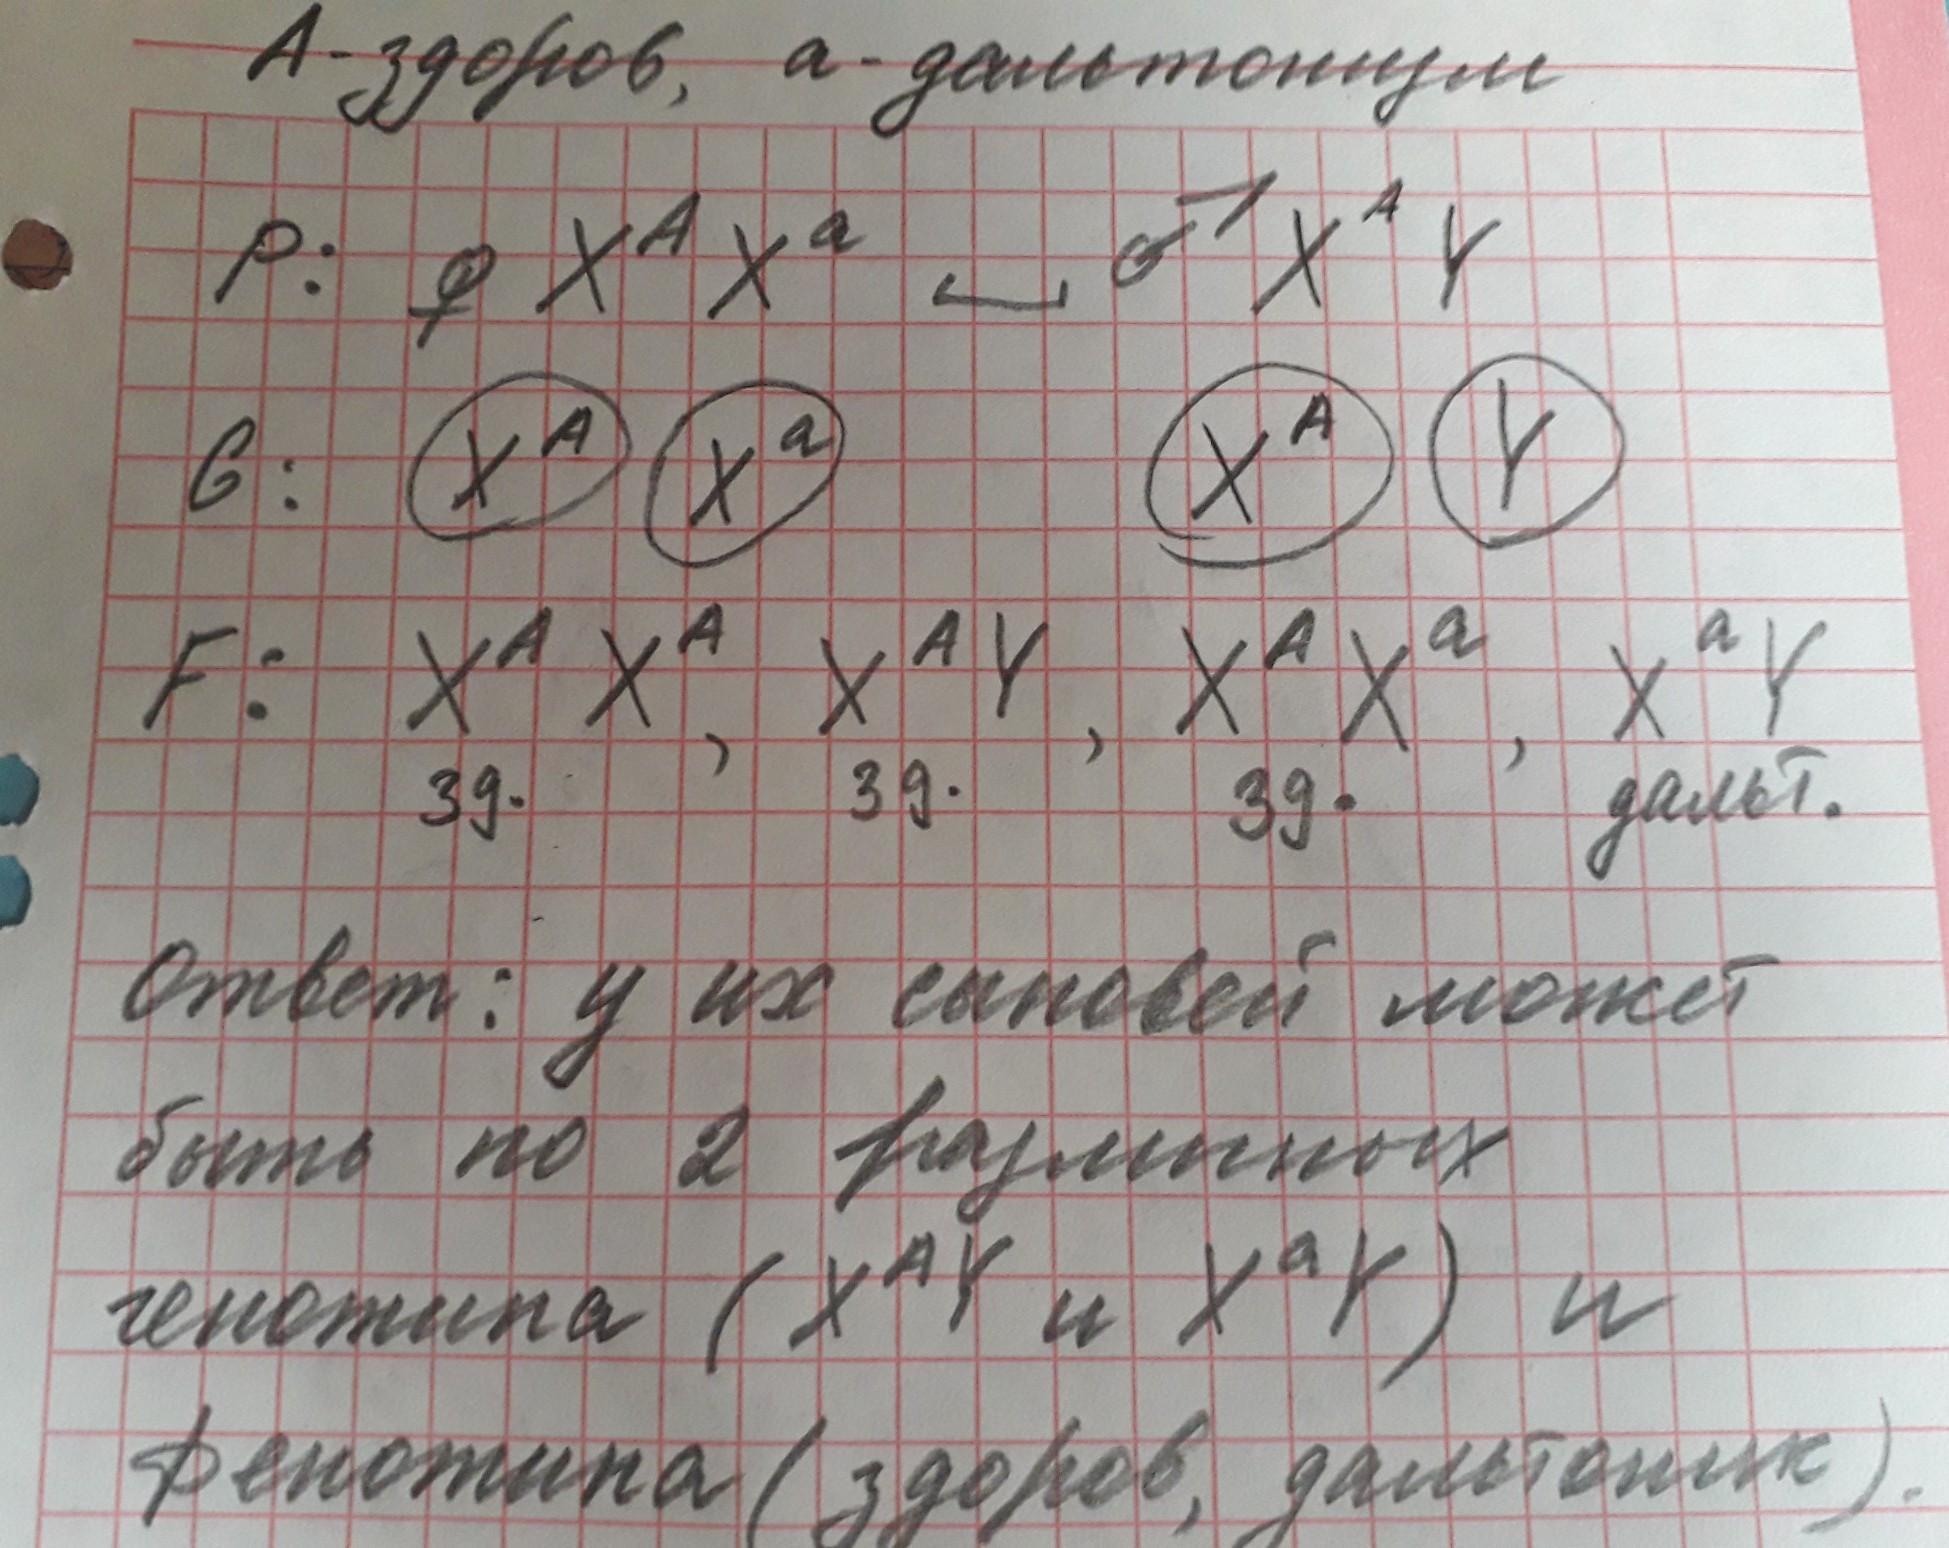 А-здоров, а-дальтонизм
P: ♀ X^A X^a ⌴ ♂ X^A Y
G: X^A X^a X^A Y
F: X^A X^A, X^A Y, X^A X^a, X^a Y
зд. зд. зд. дальт.
Ответ: у их сыновей может
быть по 2 различных
генотипа (X^A Y и X^a Y) и
фенотипа (здоров, дальтоник).